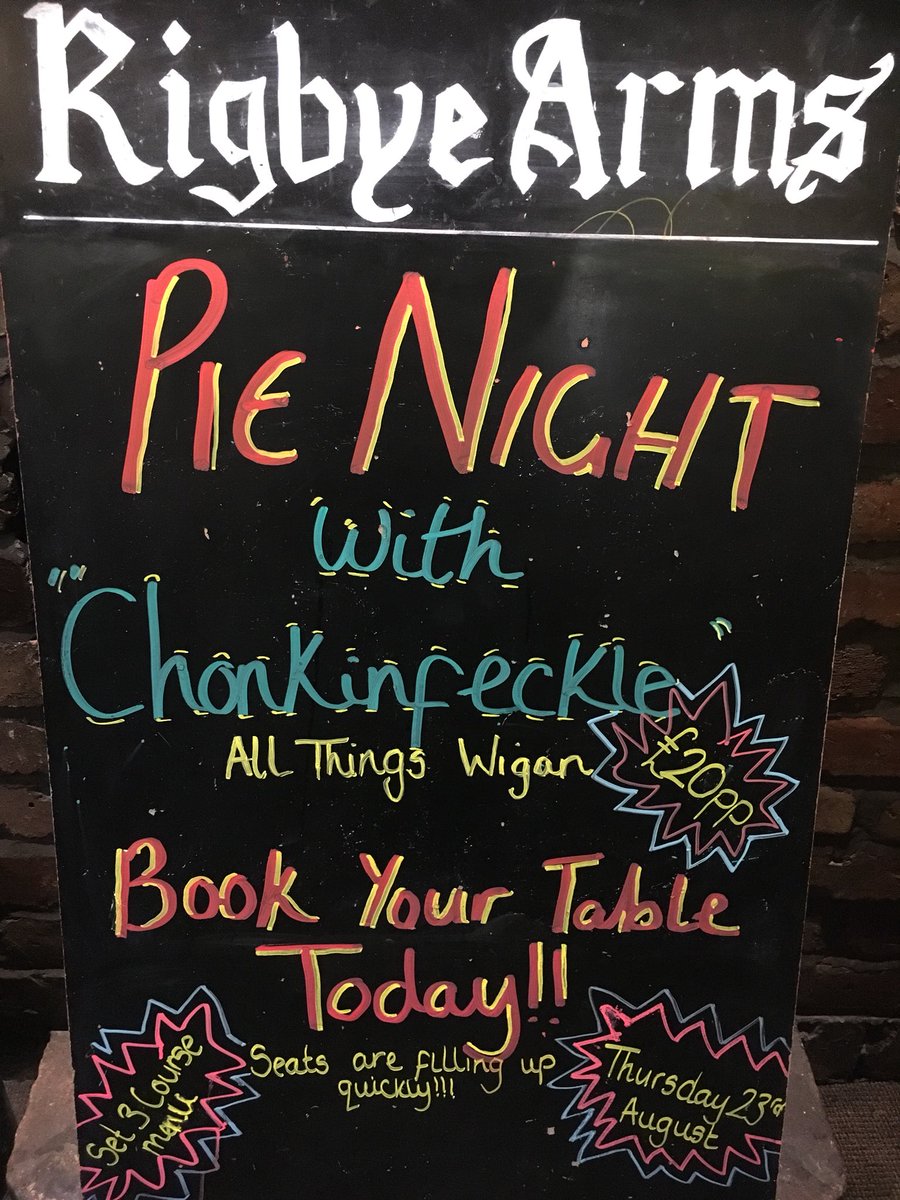 Rigbye Arms
PIE NIGHT
with
"Chonkinfeckle"
All Things Wigan
£20pp
Book Your Table
Today!!
Seats are filling up
quickly!!!
Set 3 Course
menu
Thursday 23rd
August